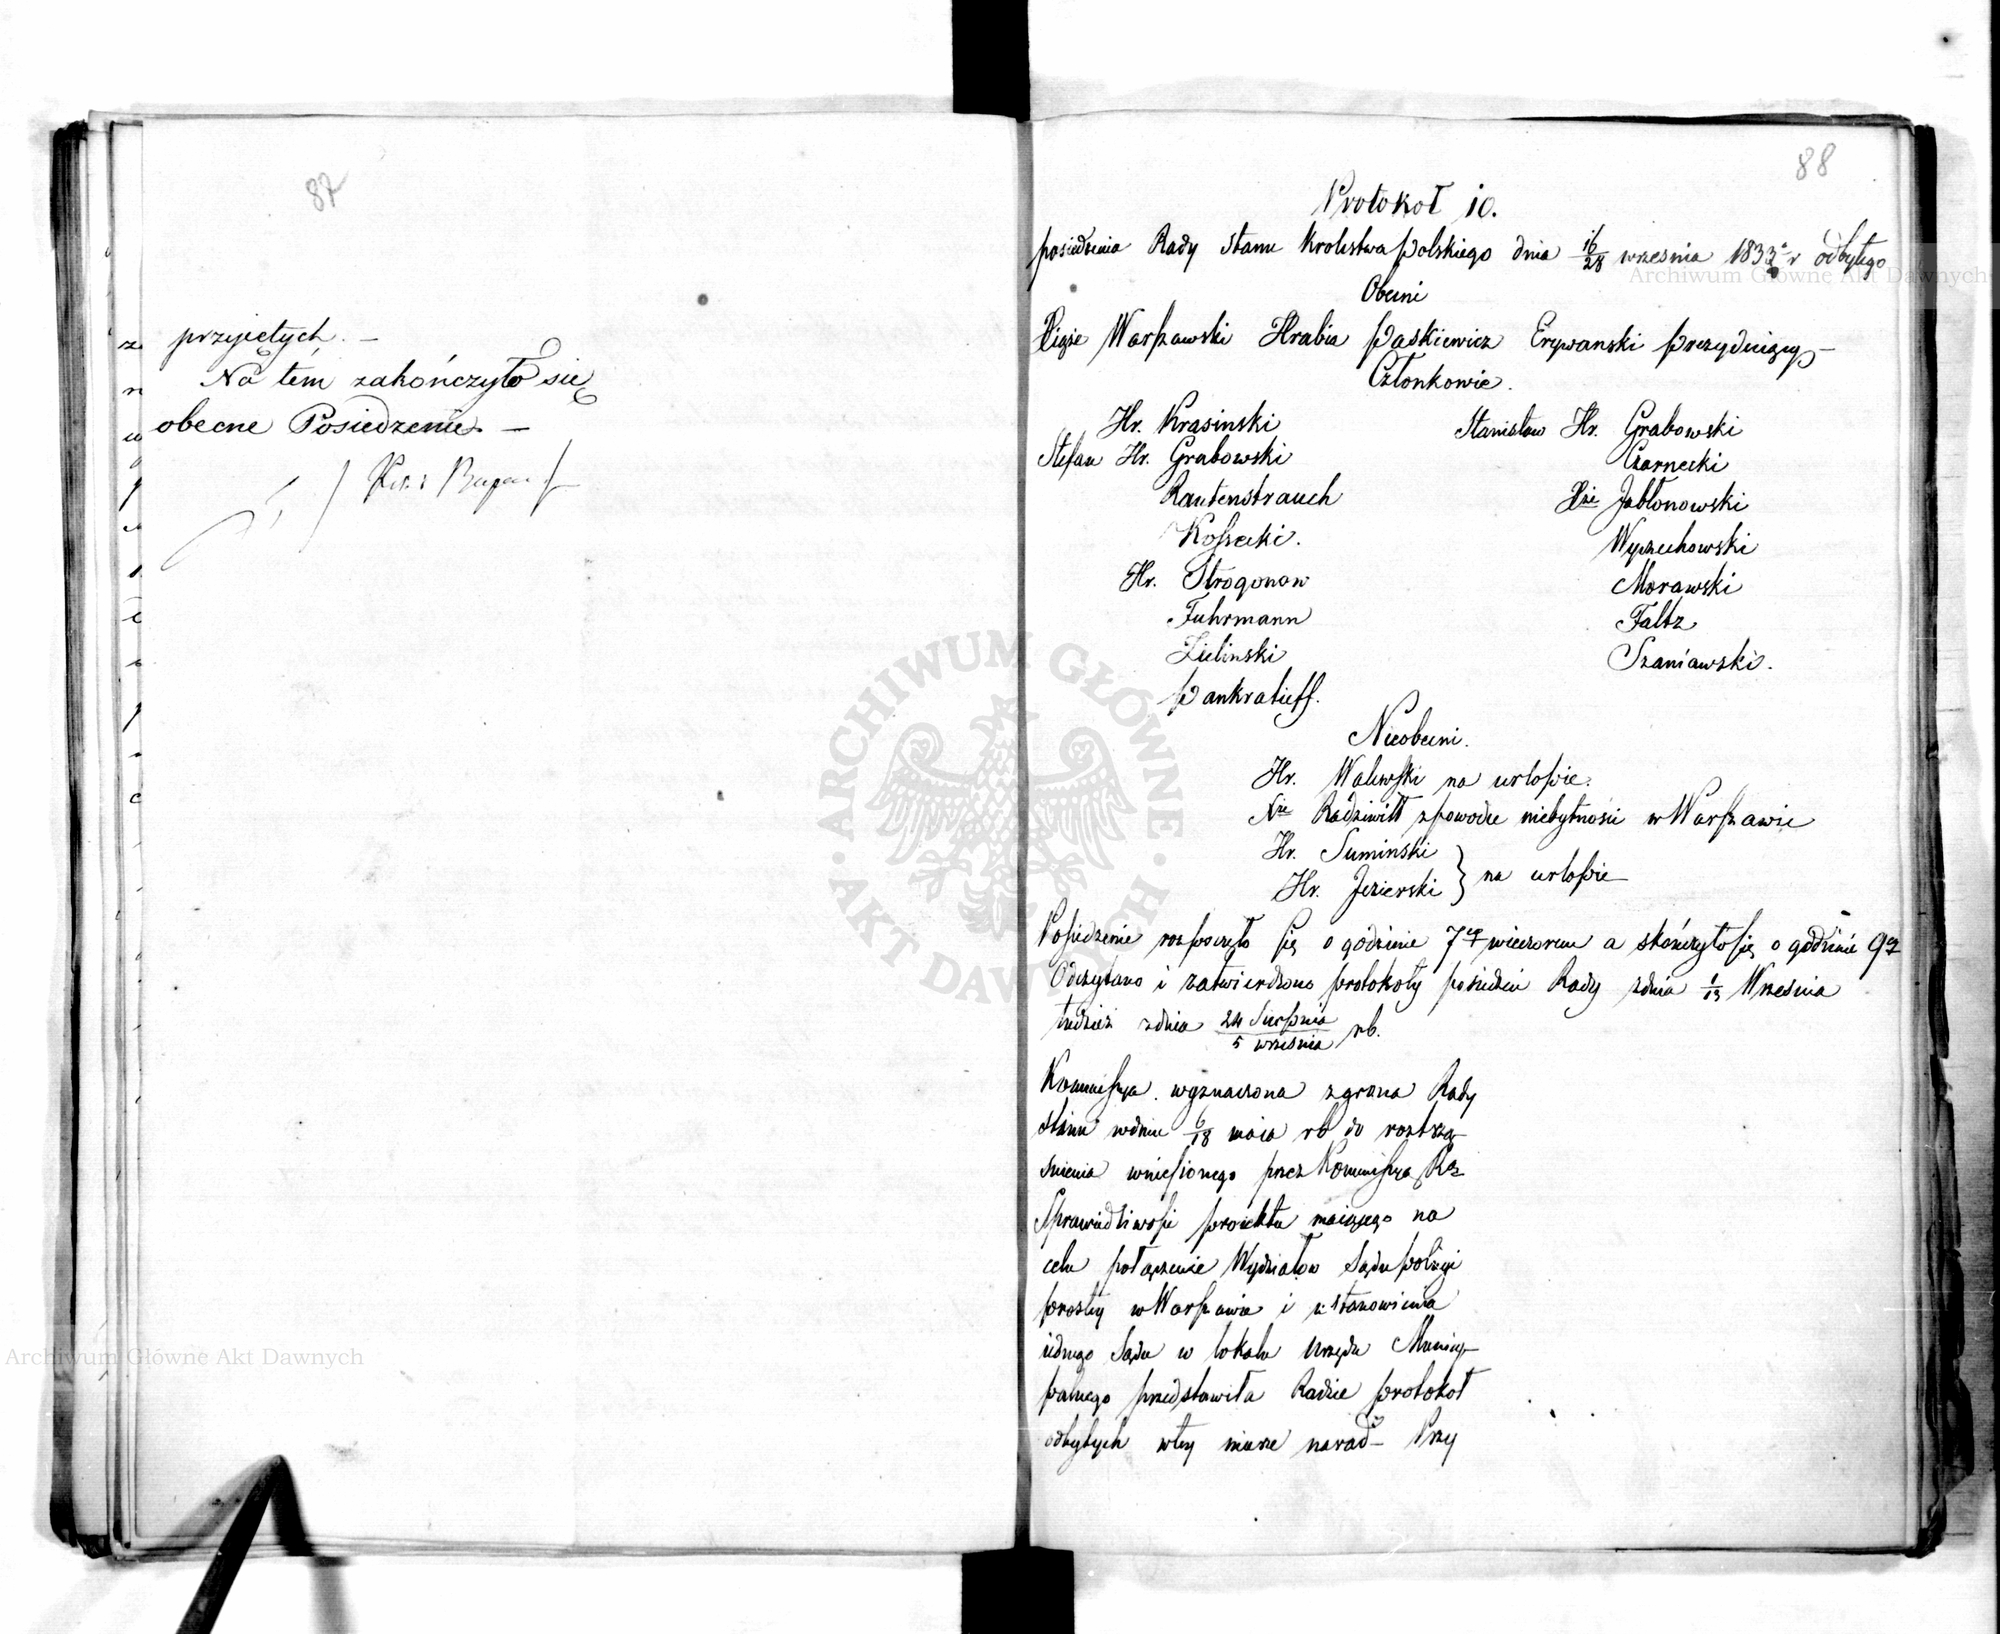 87
przyiętych. —
Na tém zakończyło się
obecne Posiedzenie. —
88
Protokoł 10.
posiedzenia Rady Stanu Krolestwa Polskiego dnia 16/28 września 1833 r odbytego
Obecni
Xiąże Warszawski Hrabia Paskiewicz Erywanski prezyduiący —
Członkowie.
Hr. Krasinski
Stefan Hr. Grabowski
Rautenstrauch
Kossecki.
Hr. Strogonow
Fuhrmann
Zielinski
Pankratieff.
Stanisław Hr. Grabowski
Czarnecki
Xże Jabłonowski
Wyczechowski
Morawski
Faltz
Szaniawski.
Nieobecni.
Hr. Walewski na urlopie.
Xże Radziwiłł z powodu niebytności w Warszawie
Hr. Suminski
Hr. Jezierski } na urlopie —
Posiedzenie rozpoczęło się o godzinie 7ey wieczorem a skończyło się o godzinie 9ey
Odczytano i zatwierdzono protokoły posiedzeń Rady z dnia 1/13 Września
tudzież z dnia 24 Sierpnia / 5 września rb.
Kommissya wyznaczona z grona Rady
Stanu w dniu 6/18 maia rb do roztrzą-
śnienia wniesionego przez Kommissyą Rz
Sprawiedliwości proiektu maiącego na
celu połączenie Wydziałow Sądu policyi
prostey w Warszawie i ustanowienia
iednego Sądu w lokalu Urzędu Municy-
palnego przedstawiła Radzie protokoł
odbytych w tey mierze narad — Przy
Archiwum Główne Akt Dawnych
Archiwum Główne Akt Dawnych
ARCHIWUM GŁÓWNE AKT DAWNYCH